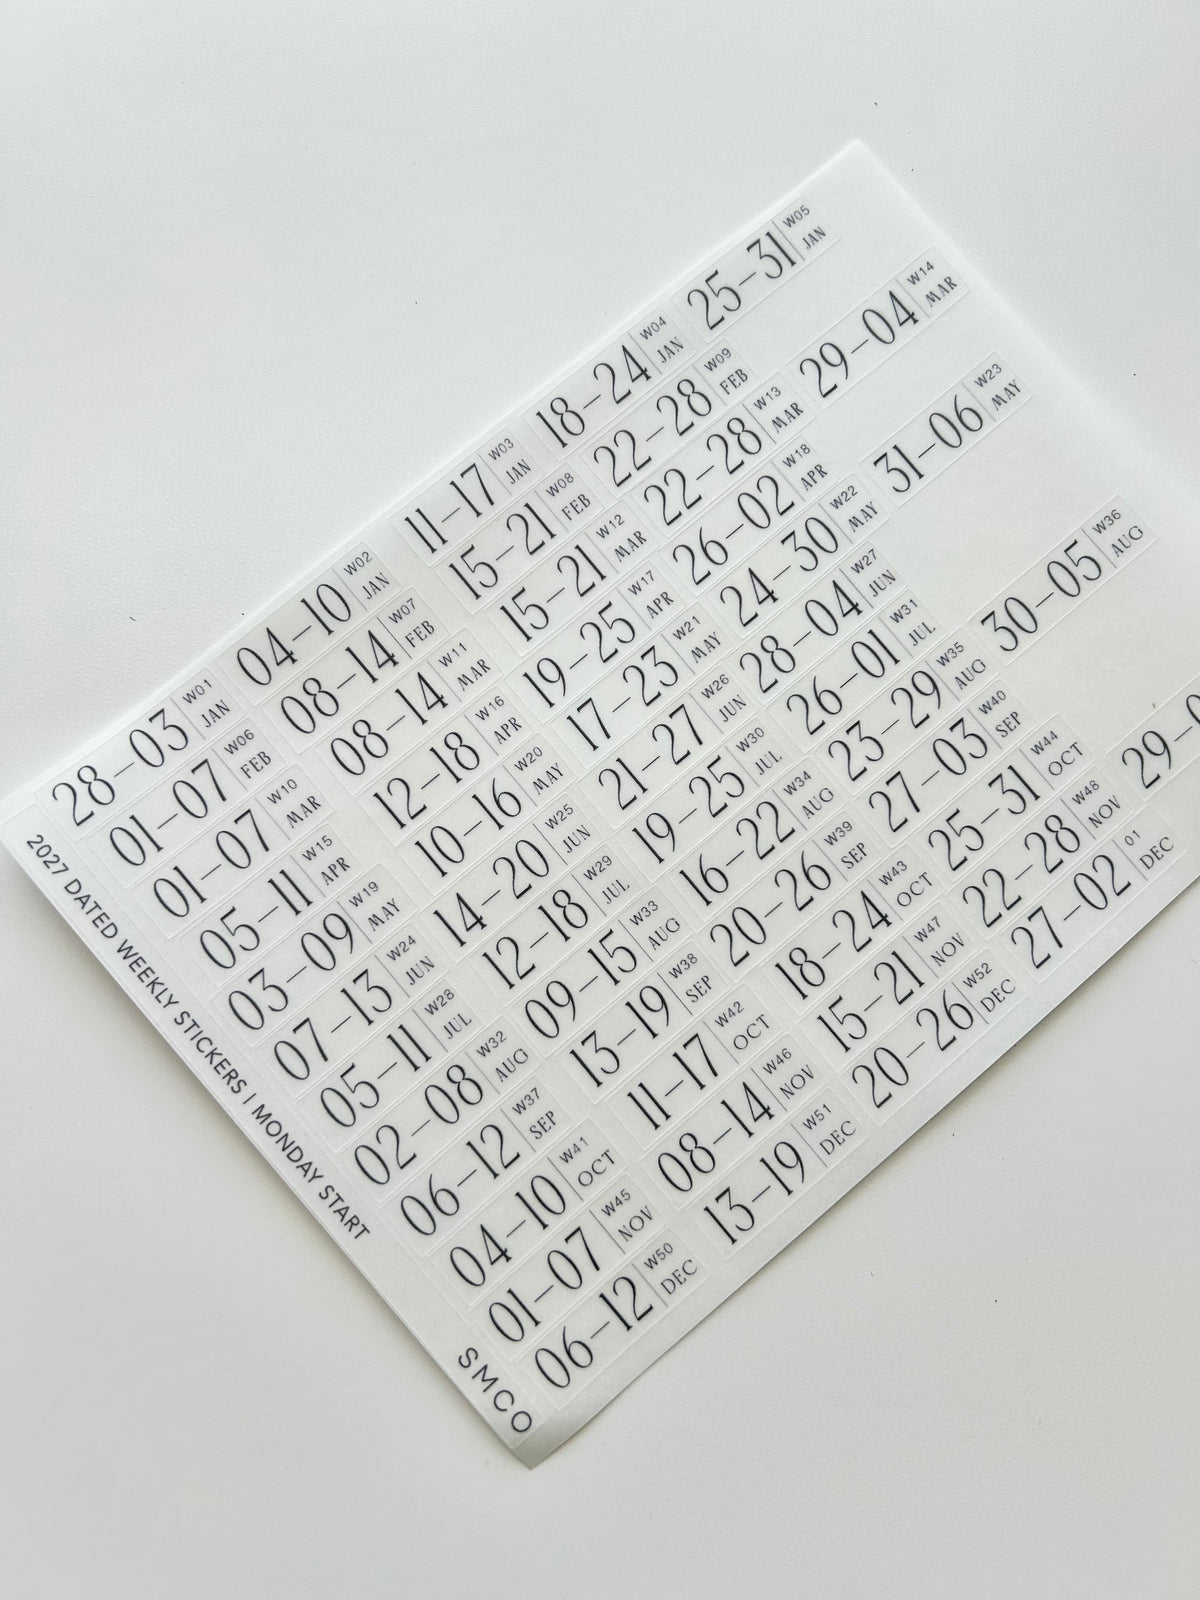 28–03 W01 JAN
04–10 W02 JAN
11–17 W03 JAN
18–24 W04 JAN
25–31 W05 JAN
01–07 W06 FEB
08–14 W07 FEB
15–21 W08 FEB
22–28 W09 FEB
01–07 W10 MAR
08–14 W11 MAR
15–21 W12 MAR
22–28 W13 MAR
29–04 W14 MAR
05–11 W15 APR
12–18 W16 APR
19–25 W17 APR
26–02 W18 APR
03–09 W19 MAY
10–16 W20 MAY
17–23 W21 MAY
24–30 W22 MAY
31–06 W23 MAY
07–13 W24 JUN
14–20 W25 JUN
21–27 W26 JUN
28–04 W27 JUN
05–11 W28 JUL
12–18 W29 JUL
19–25 W30 JUL
26–01 W31 JUL
02–08 W32 AUG
09–15 W33 AUG
16–22 W34 AUG
23–29 W35 AUG
30–05 W36 AUG
06–12 W37 SEP
13–19 W38 SEP
20–26 W39 SEP
27–03 W40 SEP
04–10 W41 OCT
11–17 W42 OCT
18–24 W43 OCT
25–31 W44 OCT
01–07 W45 NOV
08–14 W46 NOV
15–21 W47 NOV
22–28 W48 NOV
29–0
06–12 W50 DEC
13–19 W51 DEC
20–26 W52 DEC
27–02 01 DEC
2027 DATED WEEKLY STICKERS | MONDAY START
SMCO